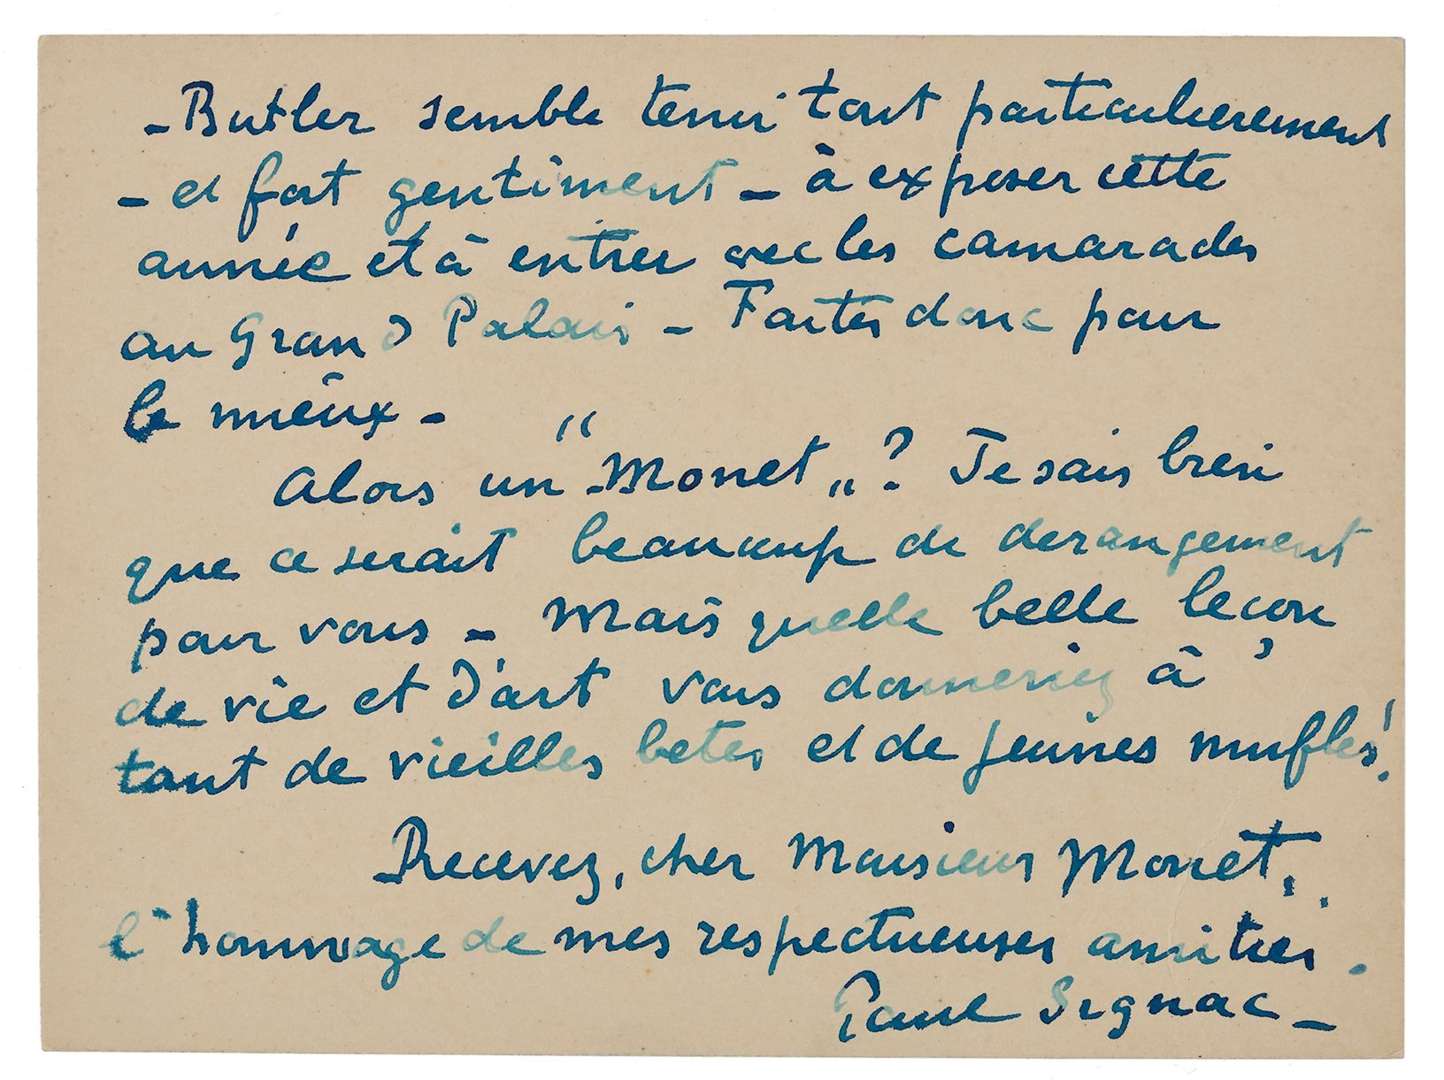 - Butler semble tenir tout particulierement
- et fort gentiment - à exposer cette
année et à entrer avec les camarades
au Grand Palais - Faites donc pour
le mieux -
Alors un "Monet" ? Je sais bien
que ce serait beaucoup de derangement
pour vous - Mais quelle belle leçon
de vie et d'art vous donneriez à
tant de vieilles betes et de jeunes mufles !
Recevez, cher Monsieur Monet,
l'hommage de mes respectueuses amitiés.
Paul Signac -